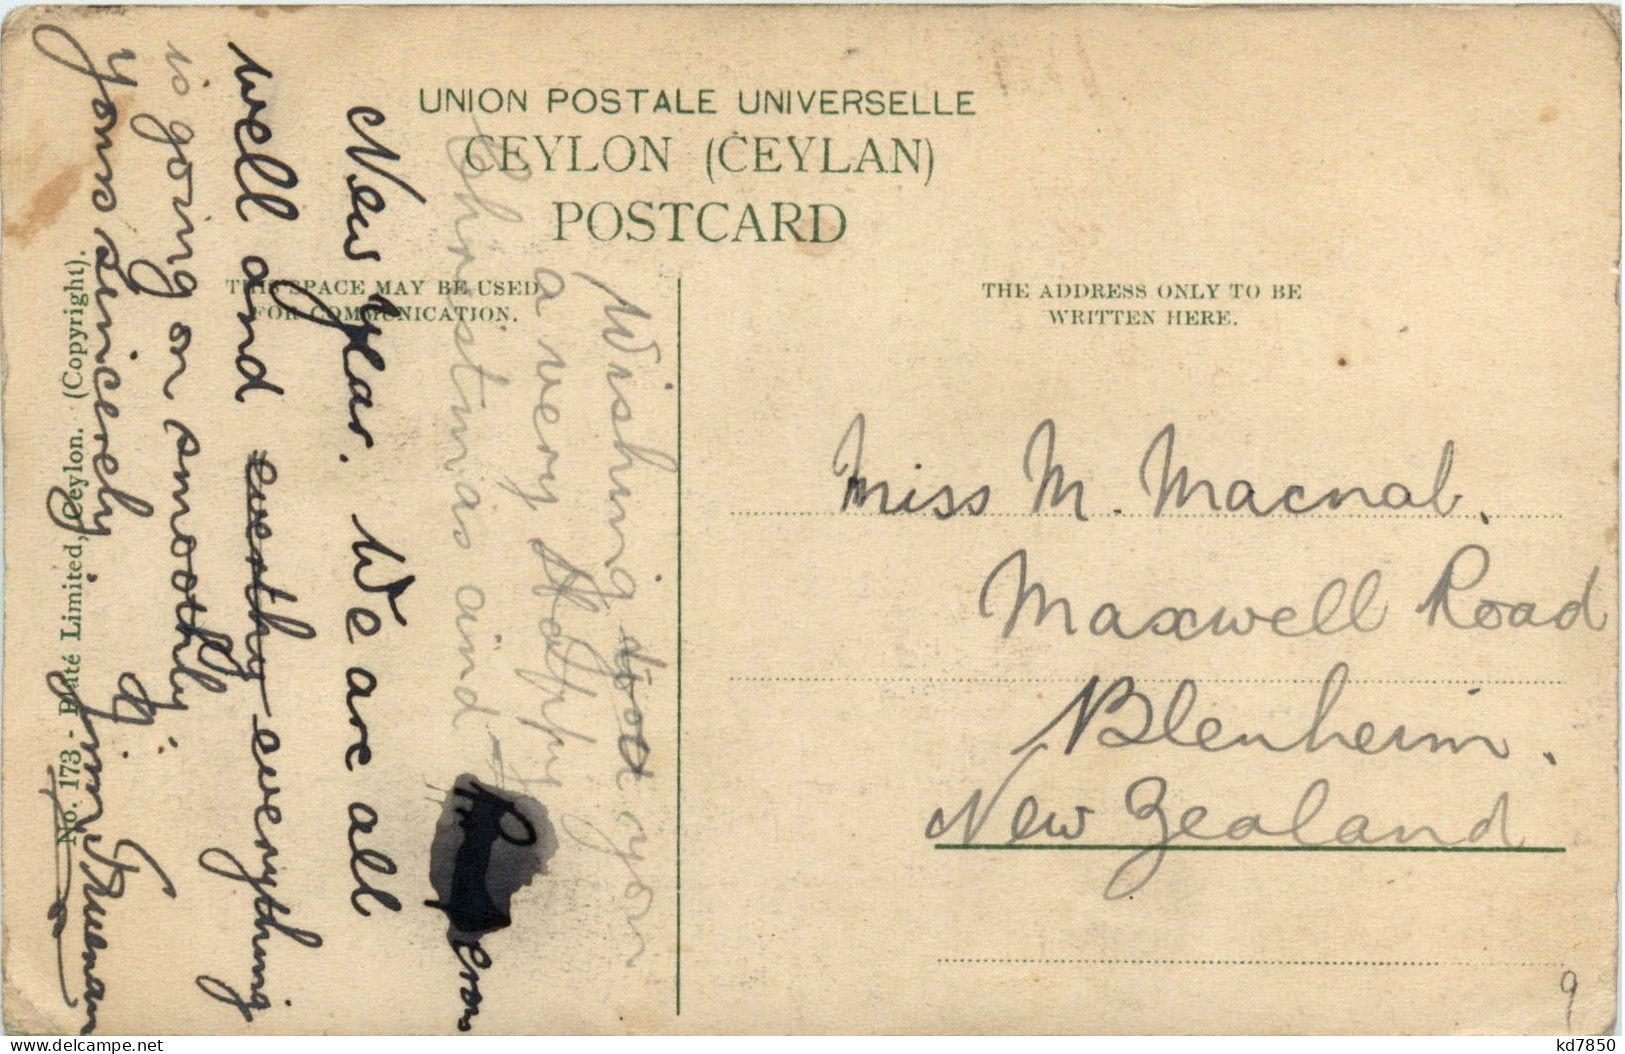 UNION POSTALE UNIVERSELLE
CEYLON (CEYLAN)
POSTCARD
THIS SPACE MAY BE USED
FOR COMMUNICATION.
THE ADDRESS ONLY TO BE
WRITTEN HERE.
Wishing you
a very Happy
Christmas and
New Year. We are all
well and everything
is going on smoothly.
Yours sincerely
Trueman
No. 173 - Platé Limited, Ceylon. (Copyright).
Miss M. Macnab.
Maxwell Road
Blenheim.
New Zealand
9
kd7850